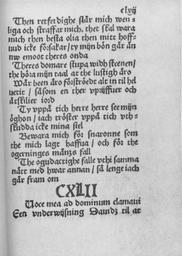 clxij
Then retferdighe slår mich wen-
liga och straffar mich, thet skal wara
mich then besta olia then mitt hoff-
uud icke försakar/ty mijn bön går än
nw emoot theres onda
Theres domare stupa widh steenen/
the höra mijn taal at the lustigh äro
Wår been äro förströdde alt in til hel
uetit/ såsom en ther vpriffuer och
åtskilier iord
Ty vppå tich herre herre see mijn
öghon/ iach tröster vppå tich vth-
skudda icke mina siel
Bewara mich för snaronne som
the mich lagt haffua/ och för the
ogerninges männs fall
The ogudactighe falle vthi samma
nätt med hwar annan/ så lenge iach
går fram om
CXLII
Uoce mea ad dominum clamaui
Een vnderwijsning Dauidz til at